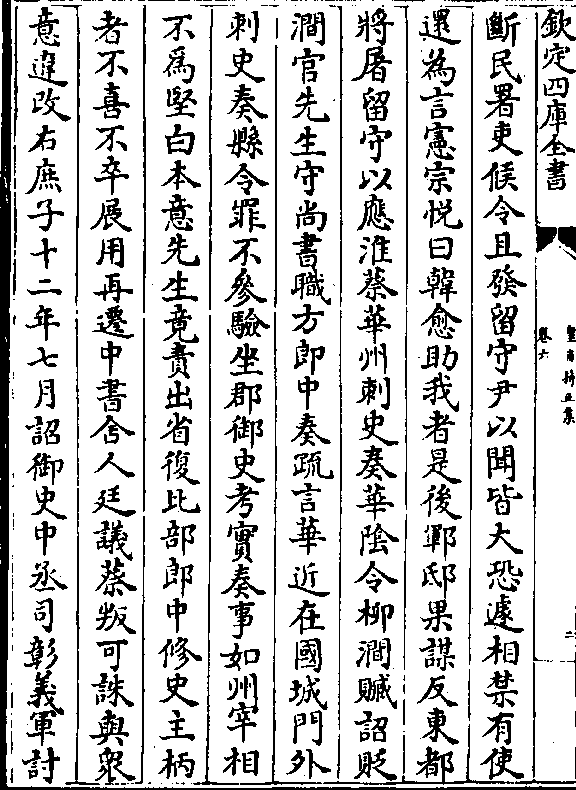 欽定四庫全書
卷六
斷民署吏候令且發留守尹以聞皆大恐遽相禁有使
還為言憲宗悅曰韓愈助我者是後鄆邸果謀反東都
將屠留守以應淮蔡華州刺史奏華陰令柳澗贓詔貶
澗官先生守尚書職方郎中奏疏言華近在國城門外
刺史奏縣令罪不參驗坐郡御史考實奏事如州宰相
不為堅白本意先生竟責出省復比部郎中修史主柄
者不喜不卒展用再遷中書舍人廷議蔡叛可誅與衆
意違改右庶子十二年七月詔御史中丞司彰義軍討